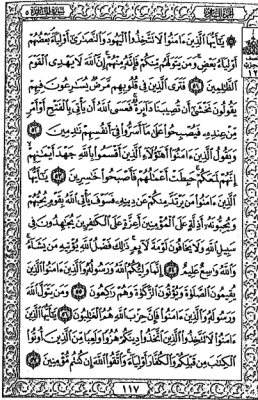 ۞ يَٰٓأَيُّهَا ٱلَّذِينَ ءَامَنُوا۟ لَا تَتَّخِذُوا۟ ٱلْيَهُودَ وَٱلنَّصَٰرَىٰٓ أَوْلِيَآءَ بَعْضُهُمْ
أَوْلِيَآءُ بَعْضٍ وَمَن يَتَوَلَّهُم مِّنكُمْ فَإِنَّهُۥ مِنْهُمْ إِنَّ ٱللَّهَ لَا يَهْدِى ٱلْقَوْمَ
ٱلظَّٰلِمِينَ ٥١ فَتَرَى ٱلَّذِينَ فِى قُلُوبِهِم مَّرَضٌ يُسَٰرِعُونَ فِيهِمْ
يَقُولُونَ نَخْشَىٰٓ أَن تُصِيبَنَا دَآئِرَةٌ فَعَسَى ٱللَّهُ أَن يَأْتِىَ بِٱلْفَتْحِ أَوْ أَمْرٍ
مِّنْ عِندِهِۦ فَيُصْبِحُوا۟ عَلَىٰ مَآ أَسَرُّوا۟ فِىٓ أَنفُسِهِمْ نَٰدِمِينَ ٥٢
وَيَقُولُ ٱلَّذِينَ ءَامَنُوٓا۟ أَهَٰٓؤُلَآءِ ٱلَّذِينَ أَقْسَمُوا۟ بِٱللَّهِ جَهْدَ أَيْمَٰنِهِمْ
إِنَّهُمْ لَمَعَكُمْ حَبِطَتْ أَعْمَٰلُهُمْ فَأَصْبَحُوا۟ خَٰسِرِينَ ٥٣ يَٰٓأَيُّهَا
ٱلَّذِينَ ءَامَنُوا۟ مَن يَرْتَدَّ مِنكُمْ عَن دِينِهِۦ فَسَوْفَ يَأْتِى ٱللَّهُ بِقَوْمٍ يُحِبُّهُمْ
وَيُحِبُّونَهُۥٓ أَذِلَّةٍ عَلَى ٱلْمُؤْمِنِينَ أَعِزَّةٍ عَلَى ٱلْكَٰفِرِينَ يُجَٰهِدُونَ فِى
سَبِيلِ ٱللَّهِ وَلَا يَخَافُونَ لَوْمَةَ لَآئِمٍ ذَٰلِكَ فَضْلُ ٱللَّهِ يُؤْتِيهِ مَن يَشَآءُ
وَٱللَّهُ وَٰسِعٌ عَلِيمٌ ٥٤ إِنَّمَا وَلِيُّكُمُ ٱللَّهُ وَرَسُولُهُۥ وَٱلَّذِينَ ءَامَنُوا۟ ٱلَّذِينَ
يُقِيمُونَ ٱلصَّلَوٰةَ وَيُؤْتُونَ ٱلزَّكَوٰةَ وَهُمْ رَٰكِعُونَ ٥٥ وَمَن يَتَوَلَّ ٱللَّهَ
وَرَسُولَهُۥ وَٱلَّذِينَ ءَامَنُوا۟ فَإِنَّ حِزْبَ ٱللَّهِ هُمُ ٱلْغَٰلِبُونَ ٥٦ يَٰٓأَيُّهَا
ٱلَّذِينَ ءَامَنُوا۟ لَا تَتَّخِذُوا۟ ٱلَّذِينَ ٱتَّخَذُوا۟ دِينَكُمْ هُزُوًا وَلَعِبًا مِّنَ ٱلَّذِينَ أُوتُوا۟
ٱلْكِتَٰبَ مِن قَبْلِكُمْ وَٱلْكُفَّارَ أَوْلِيَآءَ وَٱتَّقُوا۟ ٱللَّهَ إِن كُنتُم مُّؤْمِنِينَ ٥٧
١١٧